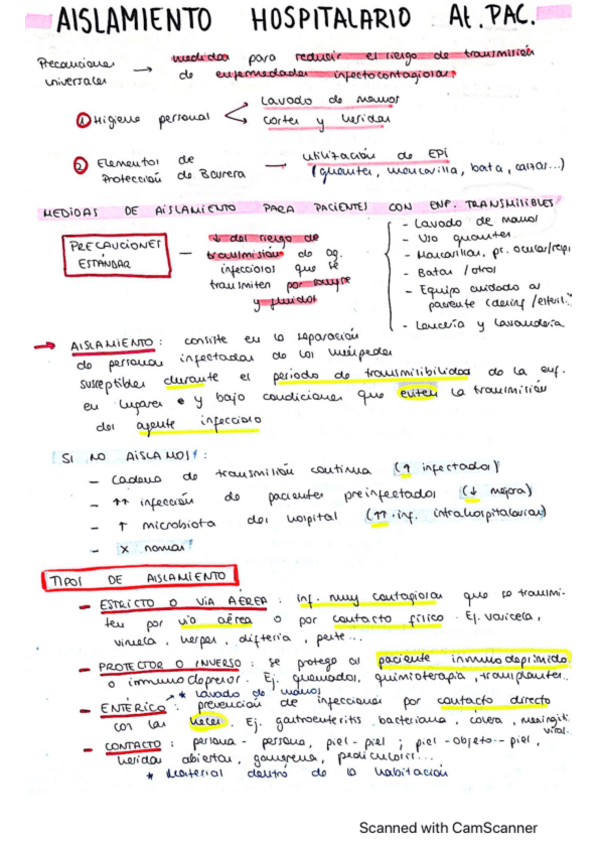 AISLAMIENTO HOSPITALARIO At. PAC.
Precauciones universales → medidas para reducir el riesgo de transmisión
de enfermedades infectocontagiosas
① Higiene personal < Lavado de manos
cortes y heridas
② Elementos de Protección de Barrera → utilización de EPI
(guantes, mascarilla, bata, calzas...)
MEDIDAS DE AISLAMIENTO PARA PACIENTES CON ENF. TRANSMISIBLES
PRECAUCIONES ESTÁNDAR
- ↓ del riesgo de
transmisión de ag.
infecciosos que se
transmiten por sangre
y fluidos
- Lavado de manos
- Uso guantes
- Mascarillas, pr. ocular/resp
- Batas / otros
- Equipo cuidado al
paciente (desinf /esteril.
- Lencería y lavandería
→ AISLAMIENTO: consiste en la separación
de personas infectadas de los huéspedes
susceptibles durante el periodo de transmisibilidad de la enf.
en lugares y bajo condiciones que eviten la transmisión
del agente infeccioso
SI NO AISLAMOS:
- Cadena de transmisión continua (↑ infectados)
- ↑↑ infección de pacientes preinfectados (↓ mejora)
- ↑ microbiota del hospital (↑↑ inf. intrahospitalarias)
- x normas
TIPOS DE AISLAMIENTO
- ESTRICTO O VÍA AÉREA: inf. muy contagiosas que se transmi-
ten por vía aérea o por contacto físico. Ej. varicela,
viruela, herpes, difteria, peste...
- PROTECTOR O INVERSO: se protege al paciente inmunodeprimido
o inmunodepresor. Ej. quemados, quimioterapia, transplantes..
* Lavado de manos
- ENTÉRICO: prevención de infecciones por contacto directo
con las heces. Ej. gastroenteritis bacteriana, cólera, meningiti
viral.
- CONTACTO: persona - persona, piel - piel; piel - objeto - piel,
heridas abiertas, gangrena, pediculosis...
* Material dentro de la habitación
Scanned with CamScanner